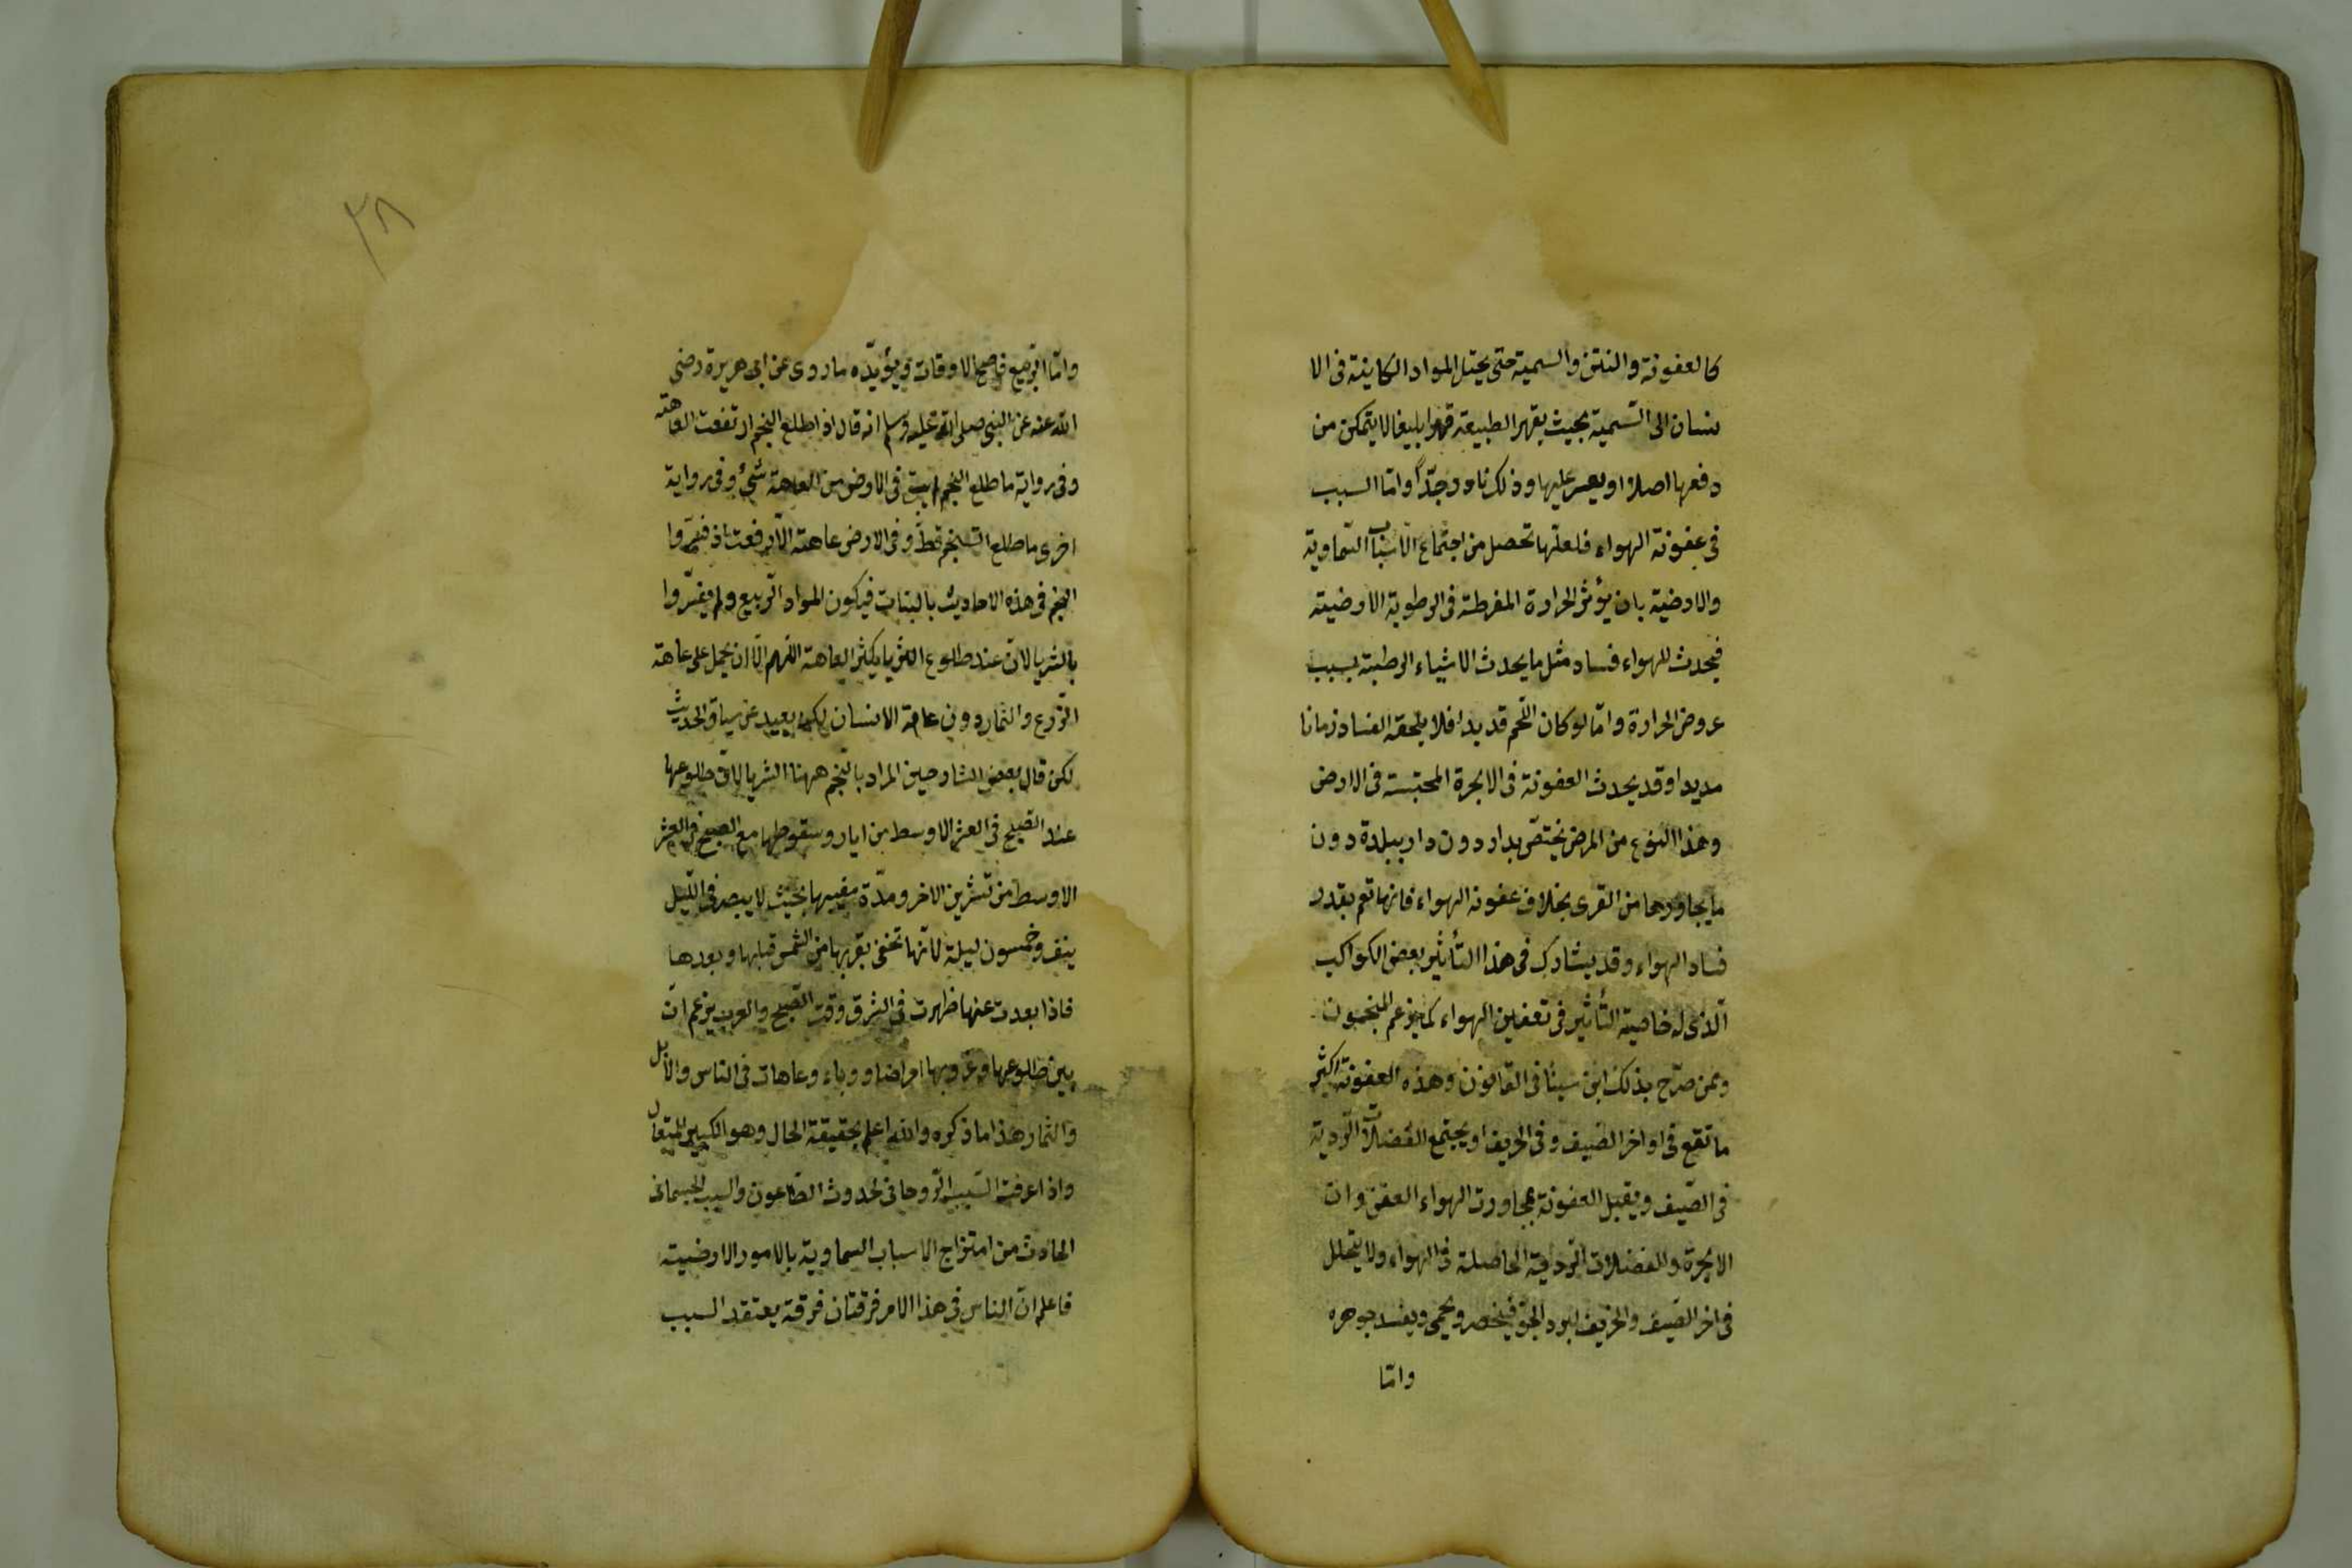 كالعفونة والنتن والسمية حتى يحيل المواد الكاينة فى الا
نسان الى السّمية بحيث يقهر الطبيعة قهرا بليغا لا يتمكن من
دفعها اصلا او يعسر عليها وذلك نادر جدّا واما السبب
فى عفونة الهواء فلعلّها تحصل من اجتماع الاسباب السّماوية
والارضية بان يؤثر الحرارة المفرطة فى الرطوبة الارضية
فيحدث للهواء فساد مثل ما يحدث الاشياء الرطبة بسبب
عروض الحرارة وامّا لو كان اللّحم قديدا فلا يلحقه الفساد زمانا
مديدا وقد يحدث العفونة فى الابخرة المحتبسة فى الارض
وهذا النوع من المرض يختصّ بدار دون دار ببلدة دون
ما يجاورها من القرى بخلاف عفونة الهواء فانها تعم بقدر
فساد الهواء وقد يشارك فى هذا التأثير بعض الكواكب
الّذى له خاصية التأثير فى تعفين الهواء كما يزعم المنجمون
وممن صرّح بذلك ابن سينا فى القانون وهذه العفونة اكثر
ما تقع فى اواخر الصّيف وفى الخريف او يجتمع الفضلات الرّدية
فى الصّيف ويقبل العفونة بمجاورت الهواء العفن وان
الابخرة والفضلات الرّدية الحاصلة فى الهواء ولا يتحلل
فى اخر الصّيف والخريف لبرد الجوّ فينحصر ويحمى ويفسد جوهره
وامّا
٢٨
وامّا الرّبيع فاصحّ الاوقات ويؤيّده ما روى عن ابى هريرة رضى
الله عنه عن النبى صلى الله عليه وسلم انه قال اذا طلع النجم ارتفعت العاهة
وفى رواية ما طلع النجم فى الارض من العاهة شئ وفى رواية
اخرى ما طلع النجم قطّ وفى الارض عاهة الّا رفعت اذ فسّروا
النجم فى هذه الاحاديث بالنبات فيكون المواد الرّبيع ولم يفسّروا
بالثريا لان عند طلوع الثريا يكثر العاهة اللّهم الّا ان يحمل على عاهة
الزّرع والثمار دون عاهة الانسان لكنه بعيد عن سياق الحديث
لكن قال بعض الشارحين المراد بالنّجم ههنا الثريا لانّ طلوعها
عند الصّبح فى العشر الاوسط من ايار وسقوطها مع الصبح فى العشر
الاوسط من تشرين الاخر ومدّة مغيبها بحيث لا يبصر فى اللّيل
نيف وخمسون ليلة لانّها تخفى بقربها من الشمس قبلها وبعدها
فاذا بعدت عنها ظهرت فى الشرق وقت الصّبح والعرب يزعم انّ
بين طلوعها وغروبها امراضا ووباء وعاهات فى الناس والابل
والثمار هذا ما ذكره والله اعلم بحقيقة الحال وهو الكبير المتعال
واذا عرفت السّبب الرّوحانى لحدوث الطّاعون والسبب الجسمانى
الحادث من امتزاج الاسباب السماوية بالامور الارضية
فاعلم انّ الناس فى هذا الامر فرقتان فرقة يعتقد السبب